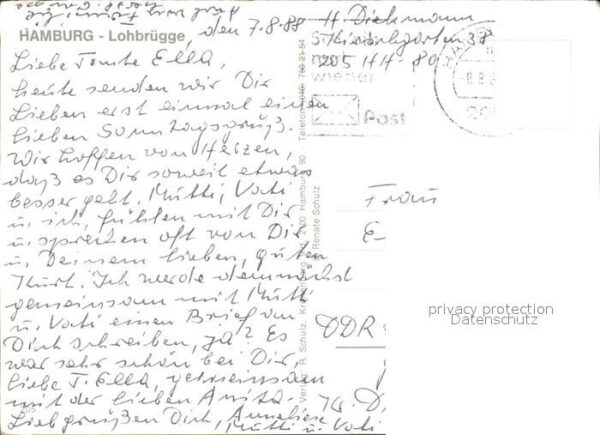 HAMBURG - Lohbrügge, den 7.8.88
H. Diekmann
Kirschgarten 38
205 HH - 80
wieder
Post
Liebe Tante Ella,
heute senden wir Dir
Lieben erst einmal einen
lieben Sonntagsgruß.
Wir hoffen von Herzen,
daß es Dir soweit etwas
besser geht. Mutti, Vati
u. ich, fühlen mit Dir
u. sprechen oft von Dir
u. Deinem lieben, guten
Kurt. Ich werde demnächst
gemeinsam mit Mutti
u. Vati einen Brief an
Dich schreiben, ja? Es
war sehr schön bei Dir,
liebe T. Ella, gemeinsam
mit der lieben Anita.
Lieb grüßen Dich, Anneliese
Mutti u. Vati
Verlag: R. Schulz, 2100 Hamburg 90 · Telefon (040) 763 21 54
Renate Schulz
Frau
E
DDR
privacy protection
Datenschutz
205